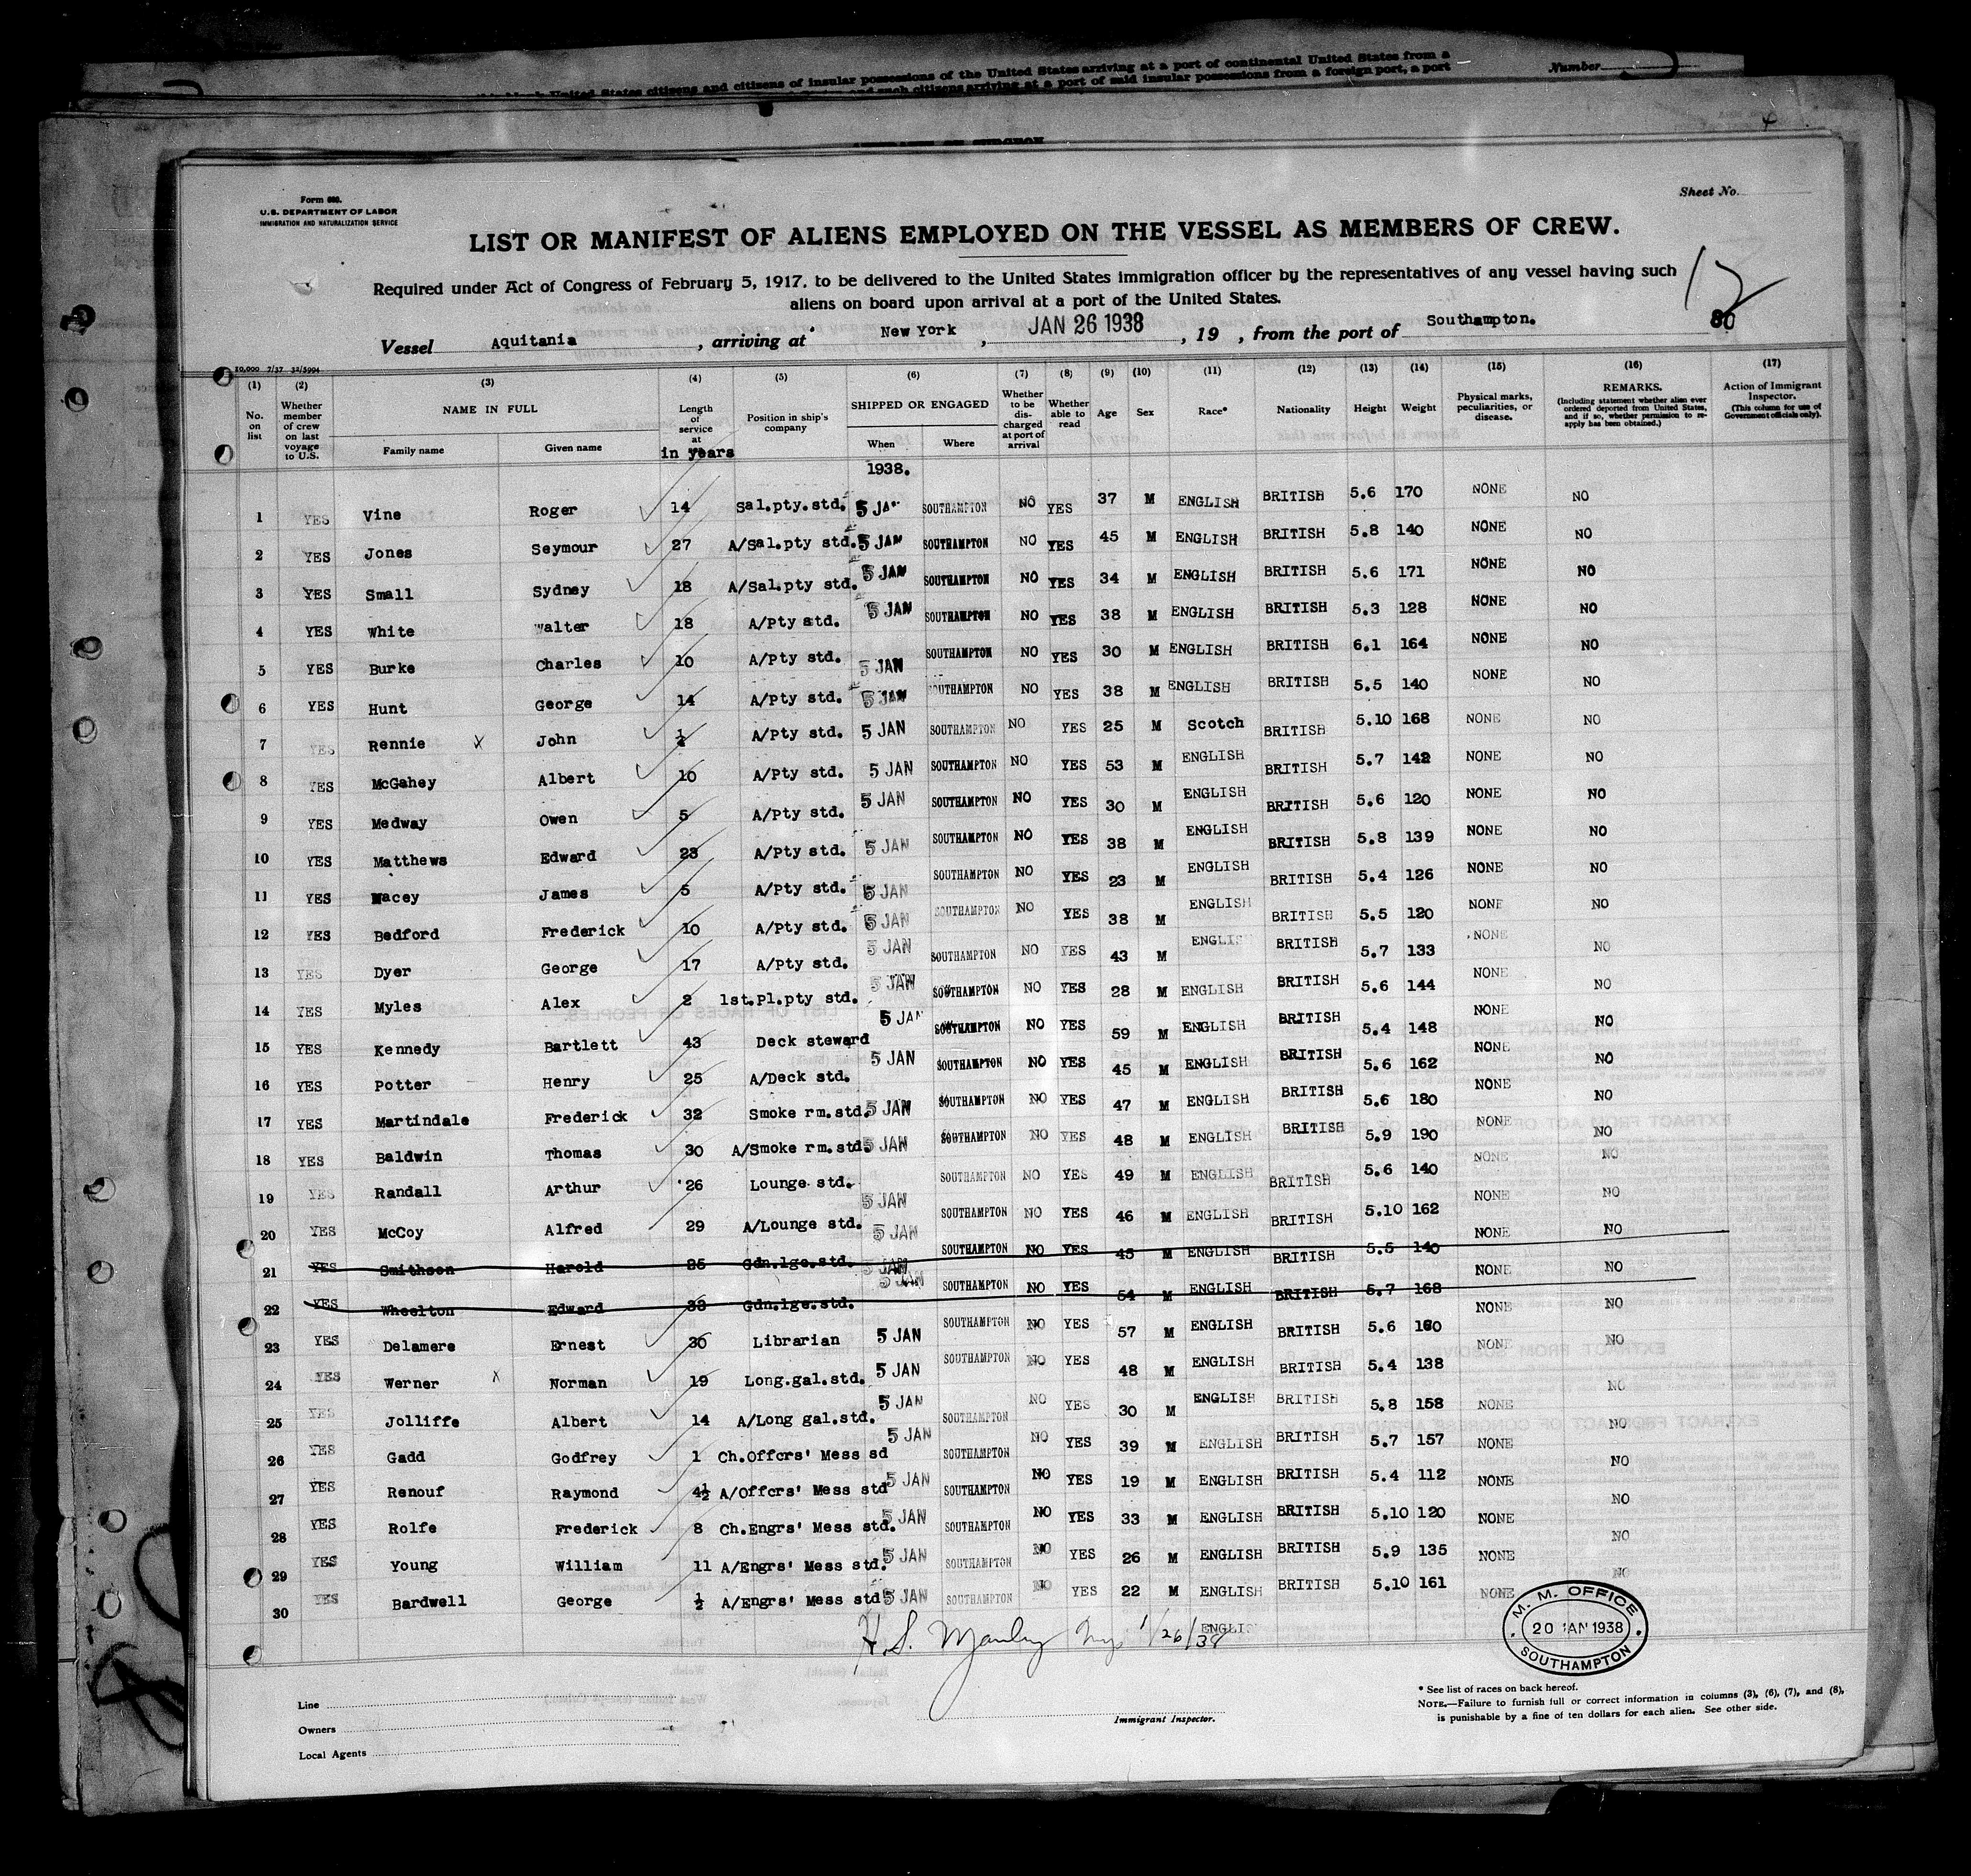 this blank United States citizens and citizens of insular possessions of the United States arriving at a port of continental United States from a
and such citizens arriving at a port of said insular possessions from a foreign port, a port
Number
Form 680.
U.S. DEPARTMENT OF LABOR
IMMIGRATION AND NATURALIZATION SERVICE
Sheet No.
LIST OR MANIFEST OF ALIENS EMPLOYED ON THE VESSEL AS MEMBERS OF CREW.
Required under Act of Congress of February 5, 1917, to be delivered to the United States immigration officer by the representatives of any vessel having such
aliens on board upon arrival at a port of the United States.
12
80
Vessel Aquitania, arriving at New York, JAN 26 1938, 19 , from the port of Southampton.
10,000 7/37 32/5994
(1) (2) (3) (4) (5) (6) (7) (8) (9) (10) (11) (12) (13) (14) (15) (16) (17)
No. on list
Whether member of crew on last voyage to U.S.
NAME IN FULL
Family name
Given name
Length of service at in years
Position in ship's company
SHIPPED OR ENGAGED
When
Where
Whether to be discharged at port of arrival
Whether able to read
Age
Sex
Race*
Nationality
Height
Weight
Physical marks, peculiarities, or disease.
REMARKS.
(Including statement whether alien ever ordered deported from United States, and if so, whether permission to reapply has been obtained.)
Action of Immigrant Inspector.
(This column for use of Government officials only).
1938.
1 YES Vine Roger 14 Sal.pty.std. 5 JAN SOUTHAMPTON NO YES 37 M ENGLISH BRITISH 5.6 170 NONE NO
2 YES Jones Seymour 27 A/Sal.pty std. 5 JAN SOUTHAMPTON NO YES 45 M ENGLISH BRITISH 5.8 140 NONE NO
3 YES Small Sydney 18 A/Sal.pty std. 5 JAN SOUTHAMPTON NO YES 34 M ENGLISH BRITISH 5.6 171 NONE NO
4 YES White Walter 18 A/Pty std. 5 JAN SOUTHAMPTON NO YES 38 M ENGLISH BRITISH 5.3 128 NONE NO
5 YES Burke Charles 10 A/Pty std. 5 JAN SOUTHAMPTON NO YES 30 M ENGLISH BRITISH 6.1 164 NONE NO
6 YES Hunt George 14 A/Pty std. 5 JAN SOUTHAMPTON NO YES 38 M ENGLISH BRITISH 5.5 140 NONE NO
7 YES Rennie X John A/Pty std. 5 JAN SOUTHAMPTON NO YES 25 M Scotch BRITISH 5.10 168 NONE NO
8 YES McGahey Albert 10 A/Pty std. 5 JAN SOUTHAMPTON NO YES 53 M ENGLISH BRITISH 5.7 142 NONE NO
9 YES Medway Owen 5 A/Pty std. 5 JAN SOUTHAMPTON NO YES 30 M ENGLISH BRITISH 5.6 120 NONE NO
10 YES Matthews Edward 23 A/Pty std. 5 JAN SOUTHAMPTON NO YES 38 M ENGLISH BRITISH 5.8 139 NONE NO
11 YES Macey James 5 A/Pty std. 5 JAN SOUTHAMPTON NO YES 23 M ENGLISH BRITISH 5.4 126 NONE NO
12 YES Bedford Frederick 10 A/Pty std. 5 JAN SOUTHAMPTON NO YES 38 M ENGLISH BRITISH 5.5 120 NONE NO
13 YES Dyer George 17 A/Pty std. 5 JAN SOUTHAMPTON NO YES 43 M ENGLISH BRITISH 5.7 133 NONE NO
14 YES Myles Alex 2 1st.Pl.pty std. 5 JAN SOUTHAMPTON NO YES 28 M ENGLISH BRITISH 5.6 144 NONE NO
15 YES Kennedy Bartlett 43 Deck steward 5 JAN SOUTHAMPTON NO YES 59 M ENGLISH BRITISH 5.4 148 NONE NO
16 YES Potter Henry 25 A/Deck std. 5 JAN SOUTHAMPTON NO YES 45 M ENGLISH BRITISH 5.6 162 NONE NO
17 YES Martindale Frederick 32 Smoke rm.std. 5 JAN SOUTHAMPTON NO YES 47 M ENGLISH BRITISH 5.6 180 NONE NO
18 YES Baldwin Thomas 30 A/Smoke rm.std. 5 JAN SOUTHAMPTON NO YES 48 M ENGLISH BRITISH 5.9 190 NONE NO
19 YES Randall Arthur 26 Lounge std. 5 JAN SOUTHAMPTON NO YES 49 M ENGLISH BRITISH 5.6 140 NONE NO
20 YES McCoy Alfred 29 A/Lounge std. 5 JAN SOUTHAMPTON NO YES 46 M ENGLISH BRITISH 5.10 162 NONE NO
21 YES Smithson Harold 25 Gdn.lge.std. 5 JAN SOUTHAMPTON NO YES 45 M ENGLISH BRITISH 5.5 140 NONE NO
22 YES Wheelton Edward 33 Gdn.lge.std. 5 JAN SOUTHAMPTON NO YES 54 M ENGLISH BRITISH 5.7 168 NONE NO
23 YES Delamere Ernest 30 Librarian 5 JAN SOUTHAMPTON NO YES 57 M ENGLISH BRITISH 5.6 160 NONE NO
24 YES Werner X Norman 19 Long.gal.std. 5 JAN SOUTHAMPTON NO YES 48 M ENGLISH BRITISH 5.4 138 NONE NO
25 YES Jolliffe Albert 14 A/Long gal.std. 5 JAN SOUTHAMPTON NO YES 30 M ENGLISH BRITISH 5.8 158 NONE NO
26 YES Gadd Godfrey 1 Ch.Offcrs' Mess sd 5 JAN SOUTHAMPTON NO YES 39 M ENGLISH BRITISH 5.7 157 NONE NO
27 YES Renouf Raymond 4½ A/Offcrs' Mess std 5 JAN SOUTHAMPTON NO YES 19 M ENGLISH BRITISH 5.4 112 NONE NO
28 YES Rolfe Frederick 8 Ch.Engrs' Mess std. 5 JAN SOUTHAMPTON NO YES 33 M ENGLISH BRITISH 5.10 120 NONE NO
29 YES Young William 11 A/Engrs' Mess std. 5 JAN SOUTHAMPTON NO YES 26 M ENGLISH BRITISH 5.9 135 NONE NO
30 YES Bardwell George ½ A/Engrs' Mess std 5 JAN SOUTHAMPTON NO YES 22 M ENGLISH BRITISH 5.10 161 NONE NO
ENGLIS
H. S. Manley 1/26/38
M. M. OFFICE
20 JAN 1938
SOUTHAMPTON
Line
Owners
Local Agents
Immigrant Inspector.
* See list of races on back hereof.
NOTE.—Failure to furnish full or correct information in columns (3), (6), (7), and (8),
is punishable by a fine of ten dollars for each alien. See other side.